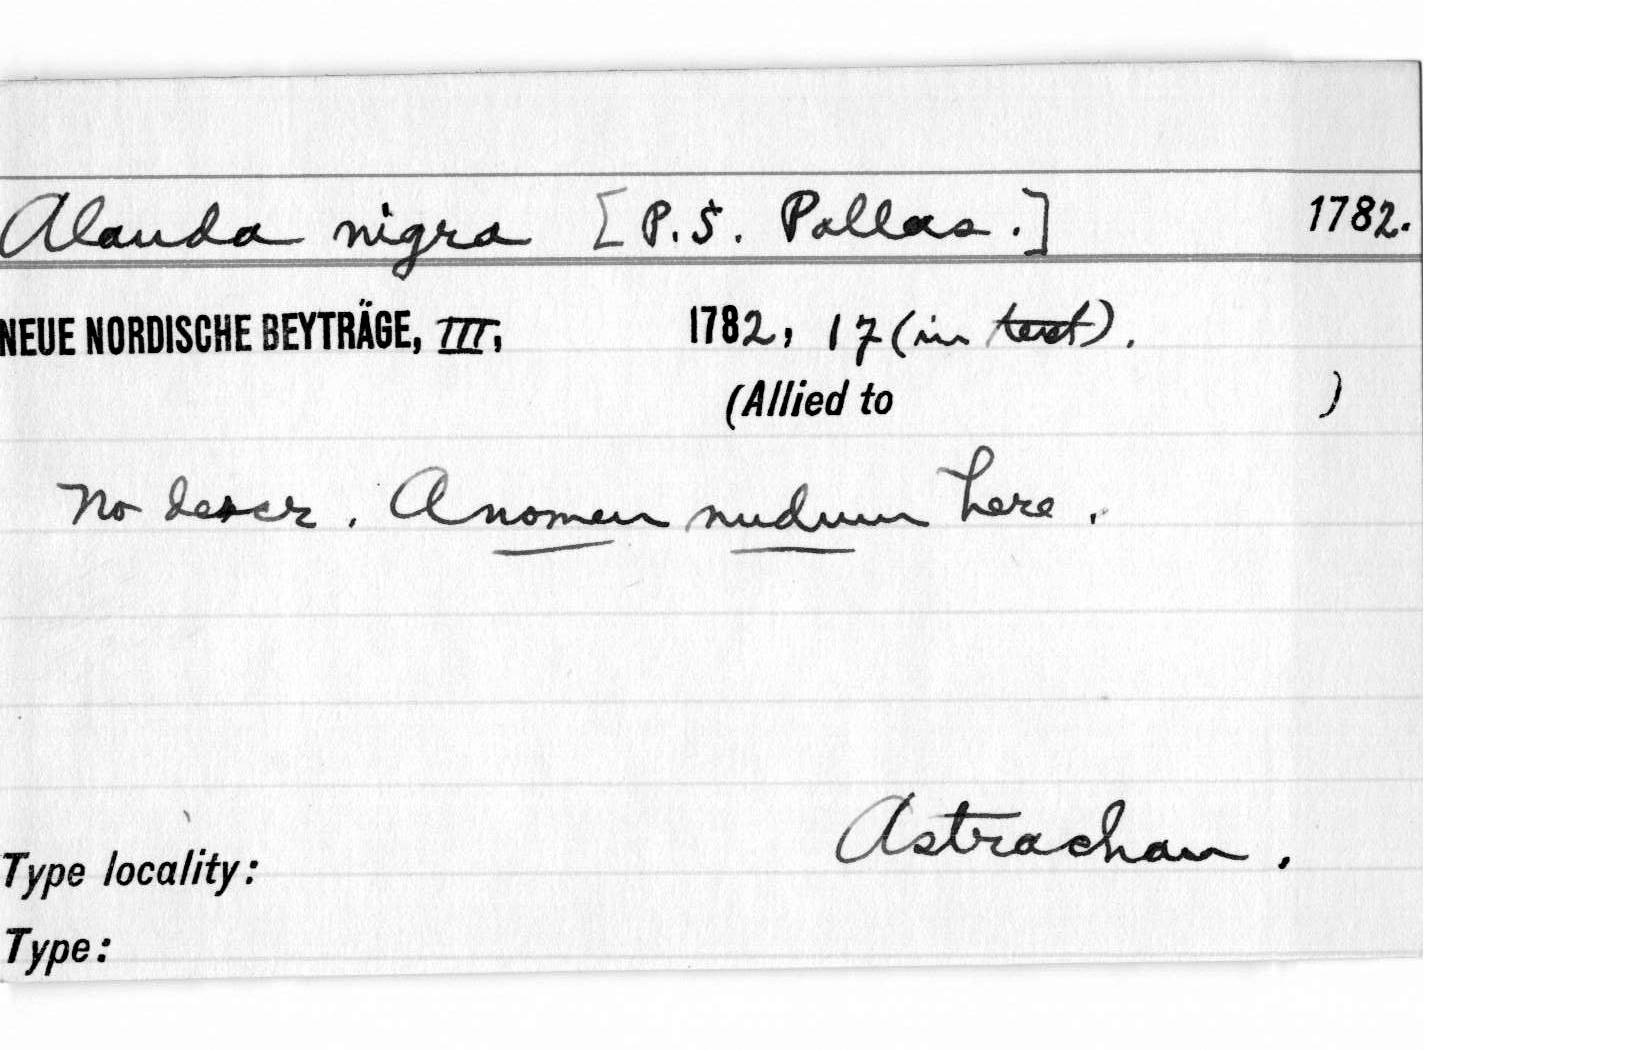 Alauda nigra [P.S. Pallas.] 1782.
NEUE NORDISCHE BEYTRÄGE, III, 1782, 17 (in text).
(Allied to )
No descr. A nomen nudum here.
Astrachan.
Type locality:
Type: